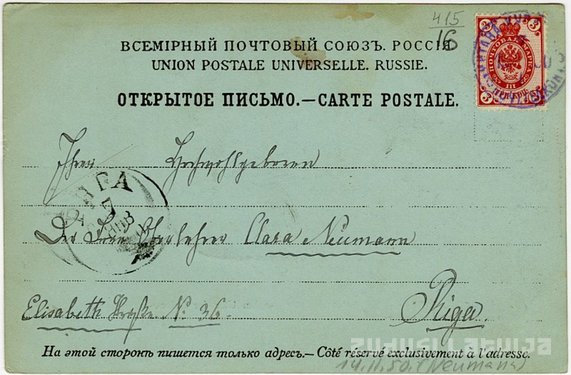 415
16
ВСЕМІРНЫЙ ПОЧТОВЫЙ СОЮЗЪ. РОССІЯ.
UNION POSTALE UNIVERSELLE. RUSSIE.
ОТКРЫТОЕ ПИСЬМО.—CARTE POSTALE.
3 3
3 3
Ihrer Hochwohlgeboren
РИГА
Clara Neumann
Elisabeth Straße. № 36.
Riga.
ZUDUSILATVIJA
На этой сторонѣ пишется только адресъ.—Côté réservé exclusivement à l'adresse.
(Neumann)